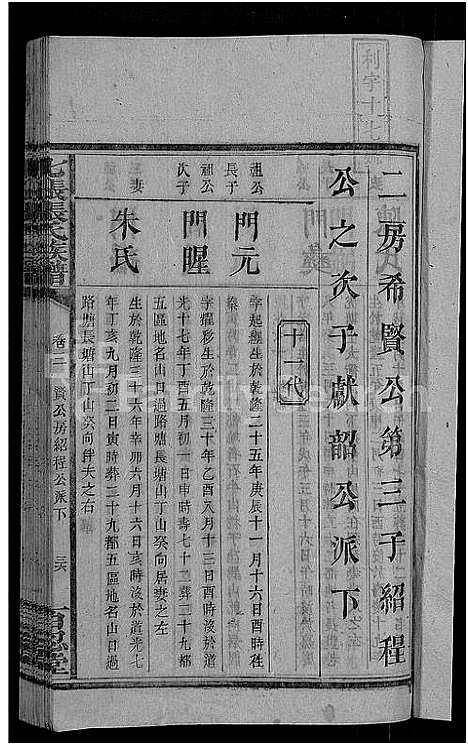 二房希賢公第三子紹程
公之次子獻韶公派下
十一代
祖公
長子
門元
字起
生於乾隆二十五年庚辰十一月十六日酉時往
秦
祖公
次子
門暒
字耀彩生於乾隆三十年乙酉八月十三日酉時歿於道
光十七年丁酉五月初一日申時壽七十三葬三十九都
五區地名山日過路塘長塘山丁山癸向居妻之左
妻
朱氏
生於乾隆三十六年辛卯六月十六日亥時歿於道光七
年丁亥九月初二日寅時葬三十九都五區地名山日過
路塘長塘山丁山癸向伴夫之右
張氏族譜
卷二
賢公房紹程公派下
三六
百忍堂
利字十七